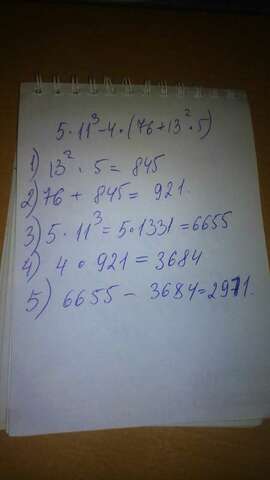 5·11³-4·(76+13²·5)
1) 13²·5=845
2) 76+845=921.
3) 5·11³=5·1331=6655
4) 4·921=3684
5) 6655-3684=2971.